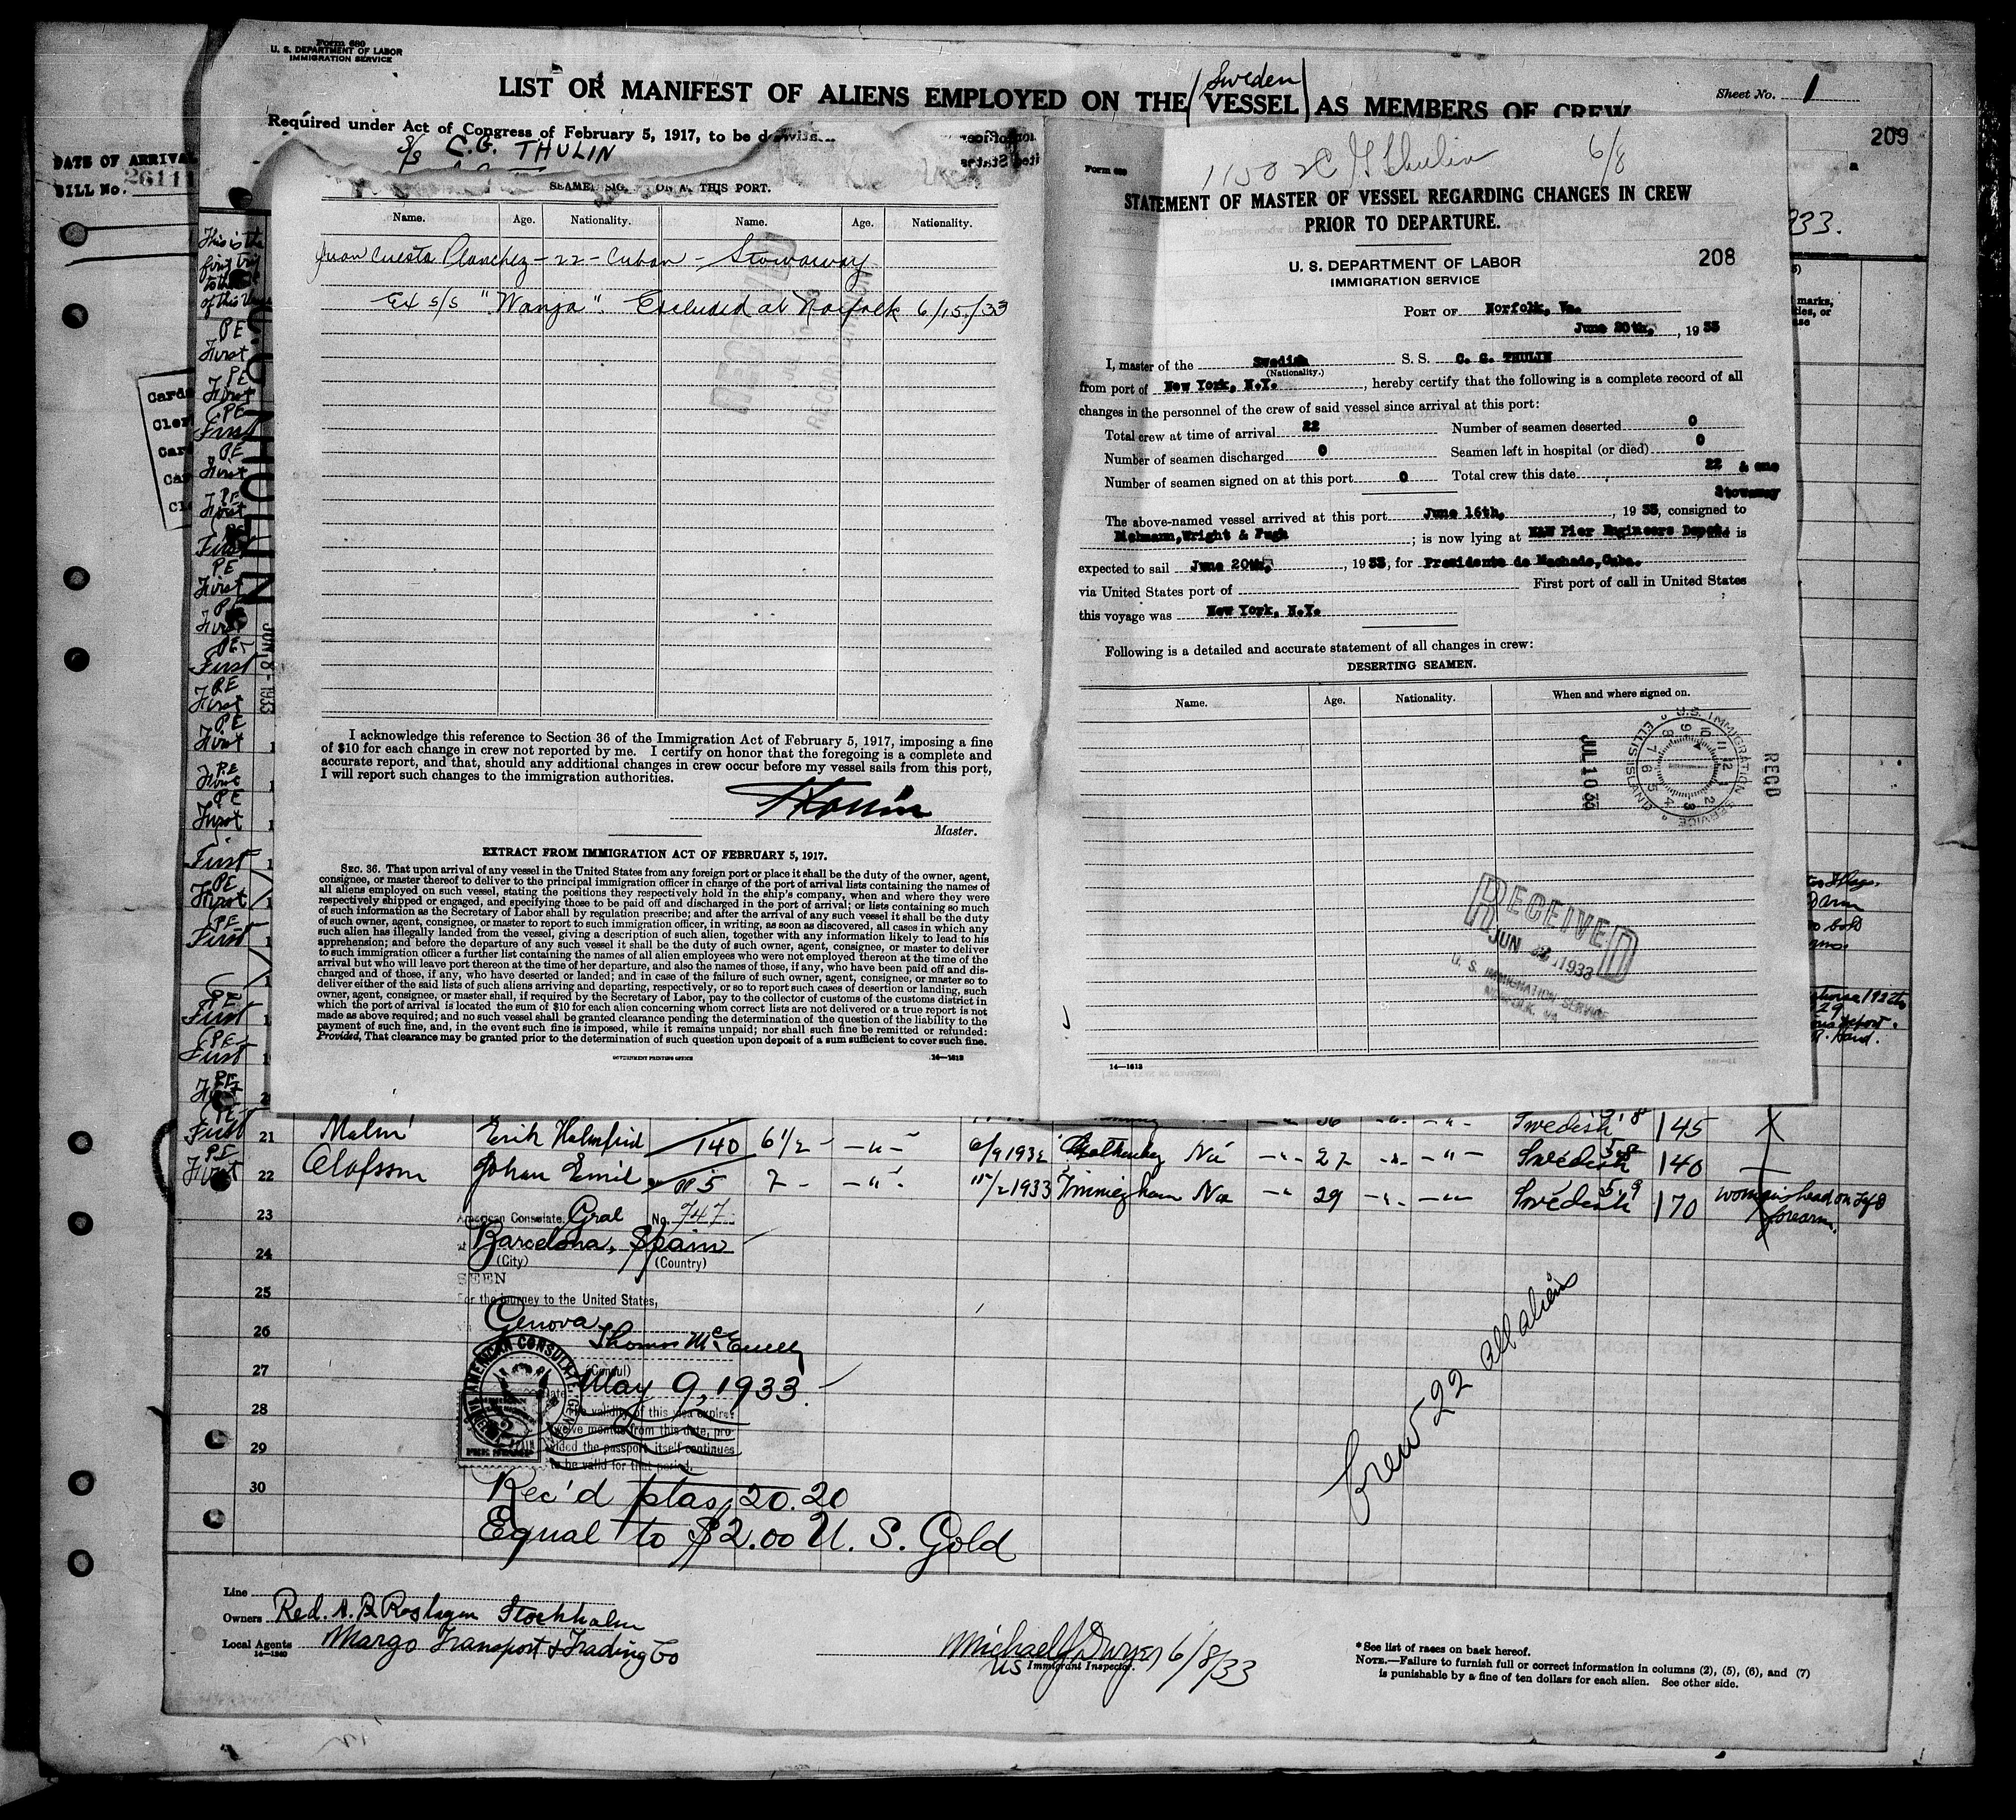 Form 680
U. S. DEPARTMENT OF LABOR
IMMIGRATION SERVICE
LIST OR MANIFEST OF ALIENS EMPLOYED ON THE VESSEL AS MEMBERS OF CREW
Sweden
Sheet No. 1
Required under Act of Congress of February 5, 1917, to be
S/S C.G. THULIN
209
DATE OF ARRIVAL
BILL No. 26111
This is the
first trip
to the
of this
PE
First
C. G. THULIN
JUN -8 1933
Cards
Cler
Car
Car
Cle
SEAMEN SIGNED ON AT THIS PORT.
Name. Age. Nationality. Name. Age. Nationality.
Juan Cuesta Planchez - 22 - Cuban - Stowaway
Ex S/S "Wanja". Excluded at Norfolk 6/15/33
RECORD DIVISION
I acknowledge this reference to Section 36 of the Immigration Act of February 5, 1917, imposing a fine
of $10 for each change in crew not reported by me. I certify on honor that the foregoing is a complete and
accurate report, and that, should any additional changes in crew occur before my vessel sails from this port,
I will report such changes to the immigration authorities.
Master.
EXTRACT FROM IMMIGRATION ACT OF FEBRUARY 5, 1917.
SEC. 36. That upon arrival of any vessel in the United States from any foreign port or place it shall be the duty of the owner, agent,
consignee, or master thereof to deliver to the principal immigration officer in charge of the port of arrival lists containing the names of
all aliens employed on such vessel, stating the positions they respectively hold in the ship's company, when and where they were
respectively shipped or engaged, and specifying those to be paid off and discharged in the port of arrival; or lists containing so much
of such information as the Secretary of Labor shall by regulation prescribe; and after the arrival of any such vessel it shall be the duty
of such owner, agent, consignee, or master to report to such immigration officer, in writing, as soon as discovered, all cases in which any
such alien has illegally landed from the vessel, giving a description of such alien, together with any information likely to lead to his
apprehension; and before the departure of any such vessel it shall be the duty of such owner, agent, consignee, or master to deliver
to such immigration officer a further list containing the names of all alien employees who were not employed thereon at the time of the
arrival but who will leave port thereon at the time of her departure, and also the names of those, if any, who have been paid off and dis-
charged and of those, if any, who have deserted or landed; and in case of the failure of such owner, agent, consignee, or master so to
deliver either of the said lists of such aliens arriving and departing, respectively, or so to report such cases of desertion or landing, such
owner, agent, consignee, or master shall, if required by the Secretary of Labor, pay to the collector of customs of the customs district in
which the port of arrival is located the sum of $10 for each alien concerning whom correct lists are not delivered or a true report is not
made as above required; and no such vessel shall be granted clearance pending the determination of the question of the liability to the
payment of such fine, and, in the event such fine is imposed, while it remains unpaid; nor shall such fine be remitted or refunded:
Provided, That clearance may be granted prior to the determination of such question upon deposit of a sum sufficient to cover such fine.
GOVERNMENT PRINTING OFFICE 14—1612
Form 689
1150 C G Thulin 6/8
STATEMENT OF MASTER OF VESSEL REGARDING CHANGES IN CREW
PRIOR TO DEPARTURE.
U. S. DEPARTMENT OF LABOR
IMMIGRATION SERVICE
208
PORT OF Norfolk, Va.
June 20th, , 19 33
I, master of the Swedish S. S. C. G. THULIN
(Nationality.)
from port of New York, N.Y. , hereby certify that the following is a complete record of all
changes in the personnel of the crew of said vessel since arrival at this port:
Total crew at time of arrival 22 Number of seamen deserted 0
Number of seamen discharged 0 Seamen left in hospital (or died) 0
Number of seamen signed on at this port 0 Total crew this date 22 & one
Stowaway
The above-named vessel arrived at this port June 16th, , 19 33, consigned to
Wright & Pugh ; is now lying at N&W Pier Engineers Depot is
expected to sail June 20th, , 19 33, for Presidente de Machado, Cuba.
via United States port of First port of call in United States
this voyage was New York, N.Y.
Following is a detailed and accurate statement of all changes in crew:
DESERTING SEAMEN.
Name. Age. Nationality. When and where signed on.
U.S. IMMIGRATION SERVICE ELLIS ISLAND
JUL 10 33
REC'D
RECEIVED
JUN 1933
U. S. IMMIGRATION SERVICE
NORFOLK, VA
14—1612
933.
marks,
21 Malm Erik Halmfrid 140 6 1/2 6/9 1932 Gothenberg No 27 Swedish 5 8 140
22 Olofsson Johan Emil 7 11/2 1933 Immingham No 29 Swedish 5 9 170 woman's head on left
forearm.
Swedish 145 X
23
American Consulate Gral No. 747
24
at Barcelona, Spain
(City) (Country)
SEEN
25
For the journey to the United States,
via Genova
26
Thomas McEnelly
(Consul)
AMERICAN CONSULATE GENERAL
27
Date May 9, 1933.
28
The validity of this visa expires
twelve months from this date, pro-
29
vided the passport itself continues
to be valid for that period.
30
Rec'd ptas, 20.20
Equal to $2.00 U. S. Gold
Crew 22 all aliens
Line
Owners Red. A. B. Roslagen Stockholm
Local Agents Margo Transport & Trading Co
14—1240
Michael J Dwyer 6/8/33
US Immigrant Inspector.
*See list of races on back hereof.
NOTE.—Failure to furnish full or correct information in columns (2), (5), (6), and (7)
is punishable by a fine of ten dollars for each alien. See other side.